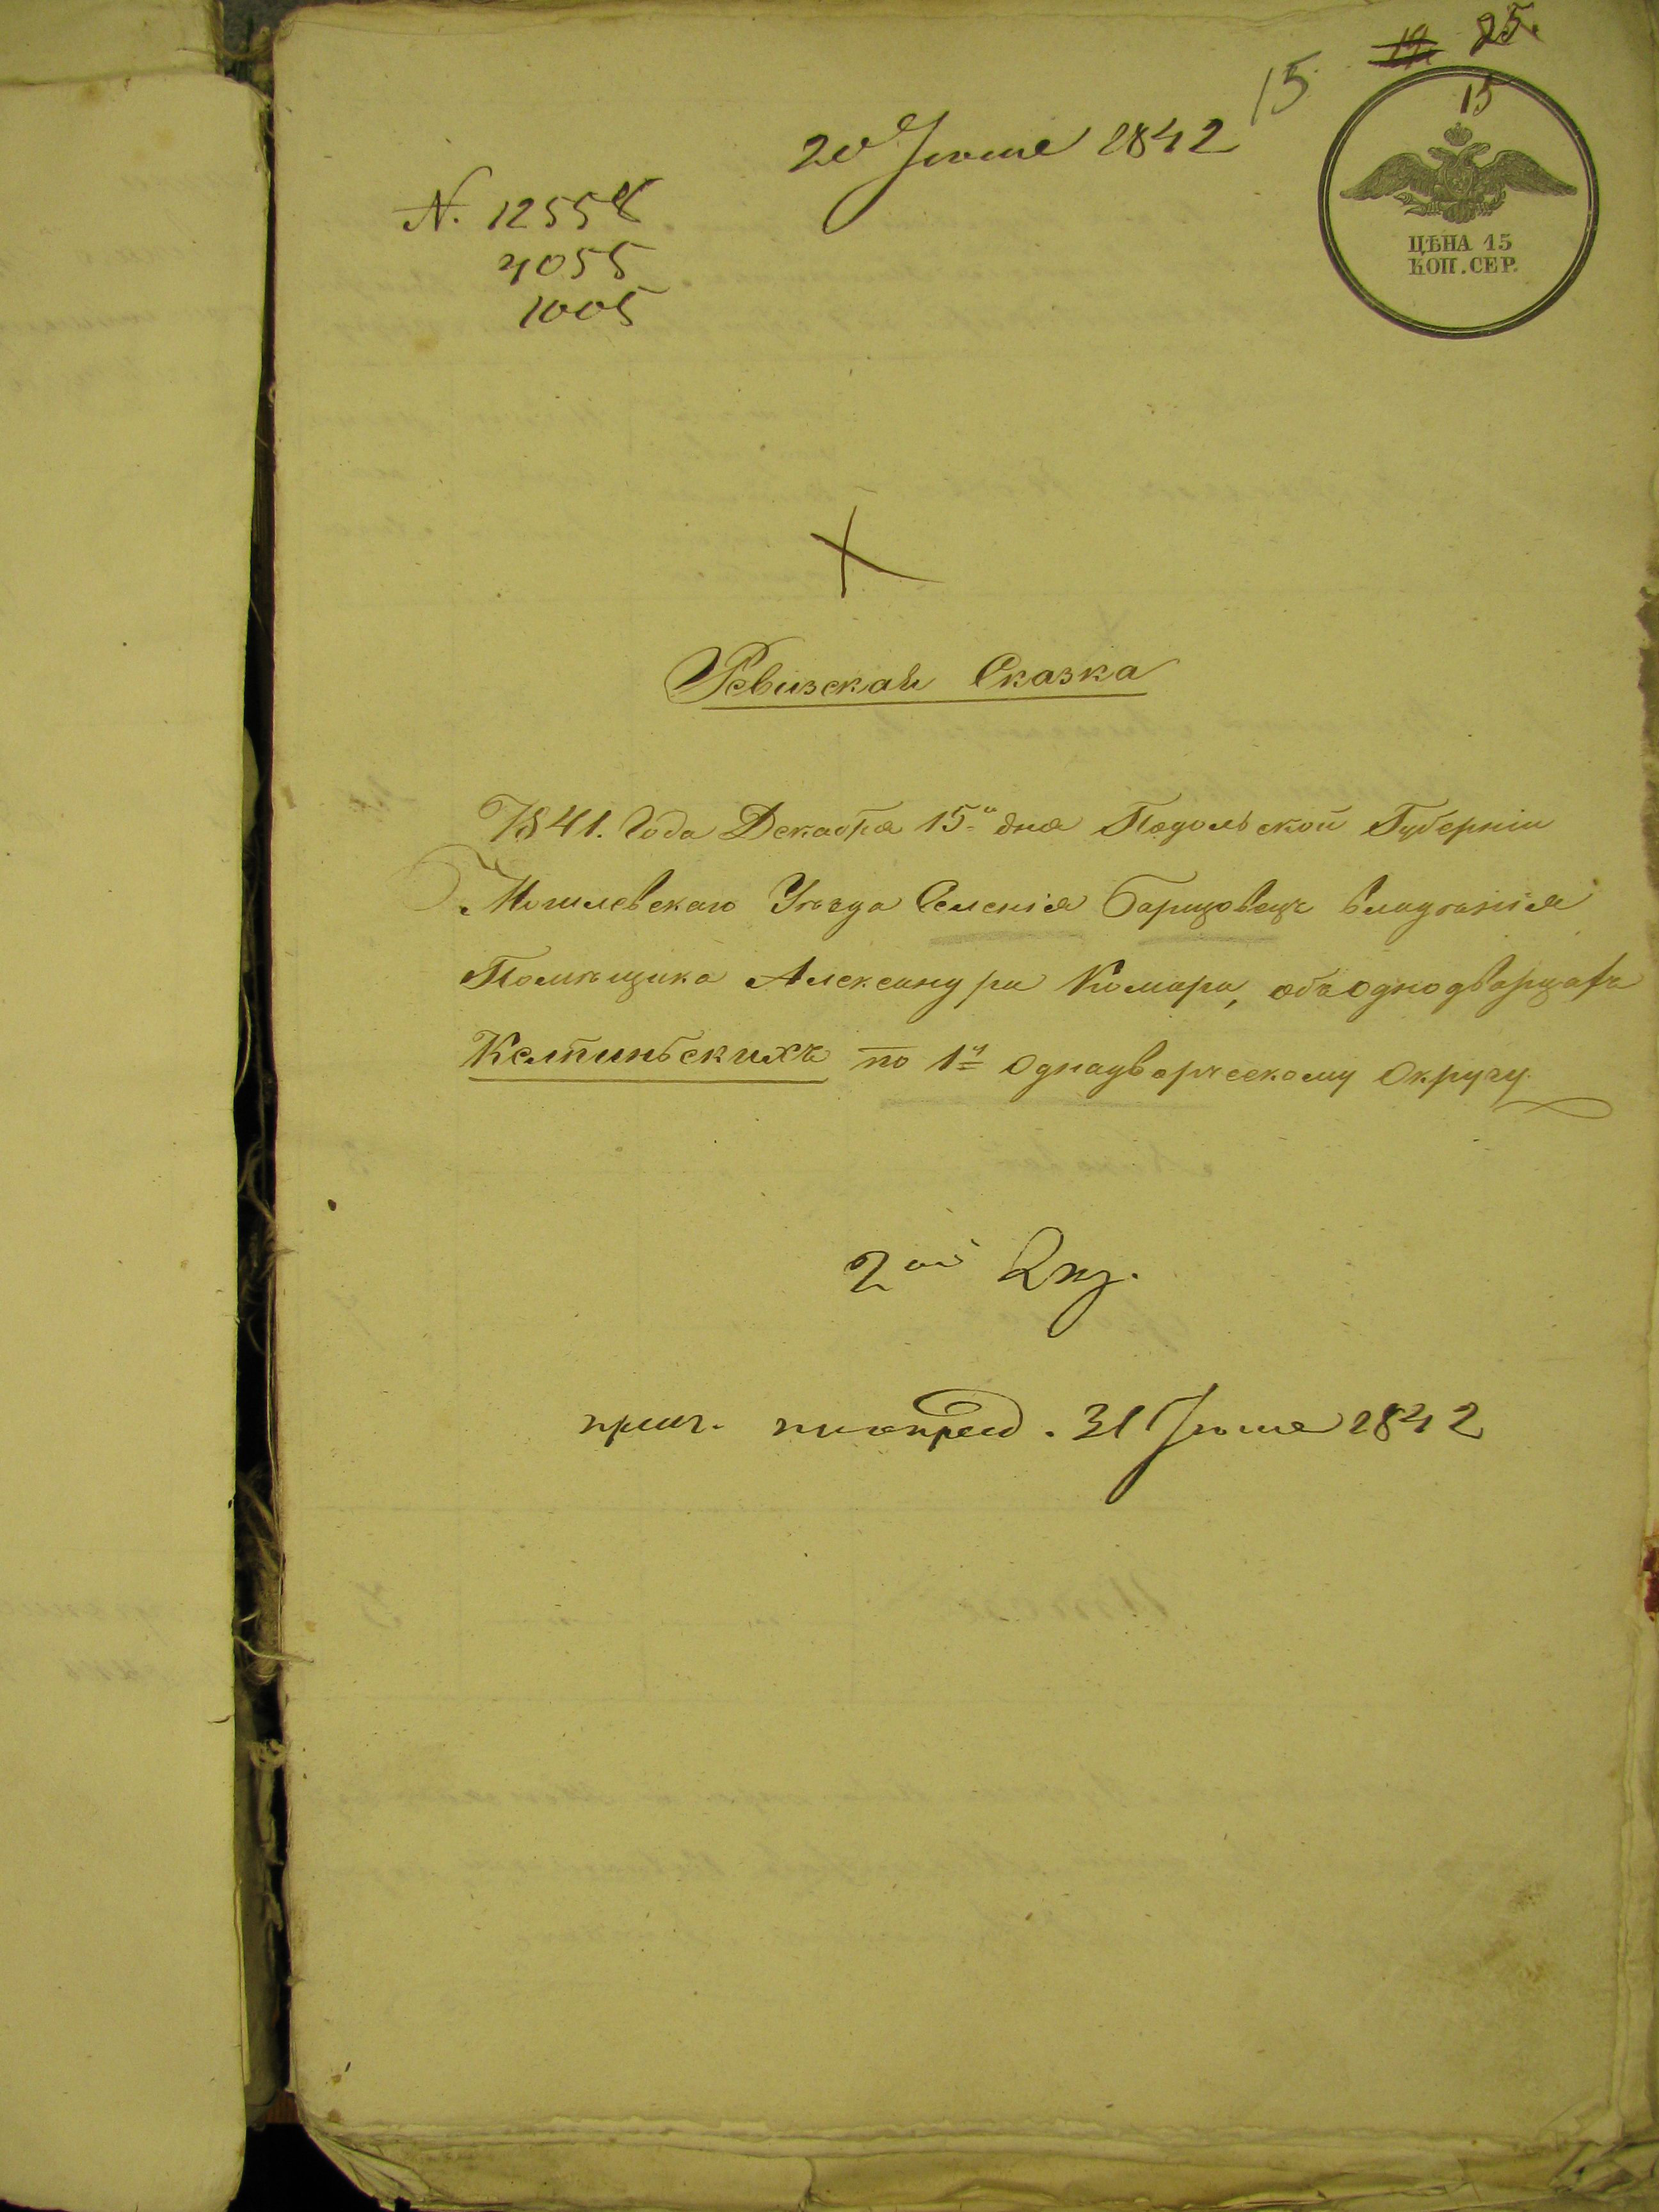 19 25.
15
15
20 Іюня 1842
N. 12558
4055
1005
ЦѢНА 15
КОП. СЕР.
Ревизская Сказка
1841. Года Декабря 15го дня Подольской Губерніи
Могилевскаго Уѣзда Селенія Барщовецъ владѣнія
Помѣщика Александра Комара, объ однодворцахъ
Келтинскихъ по 1му Однадворческому Округу.
2ой Экз.
31 1842